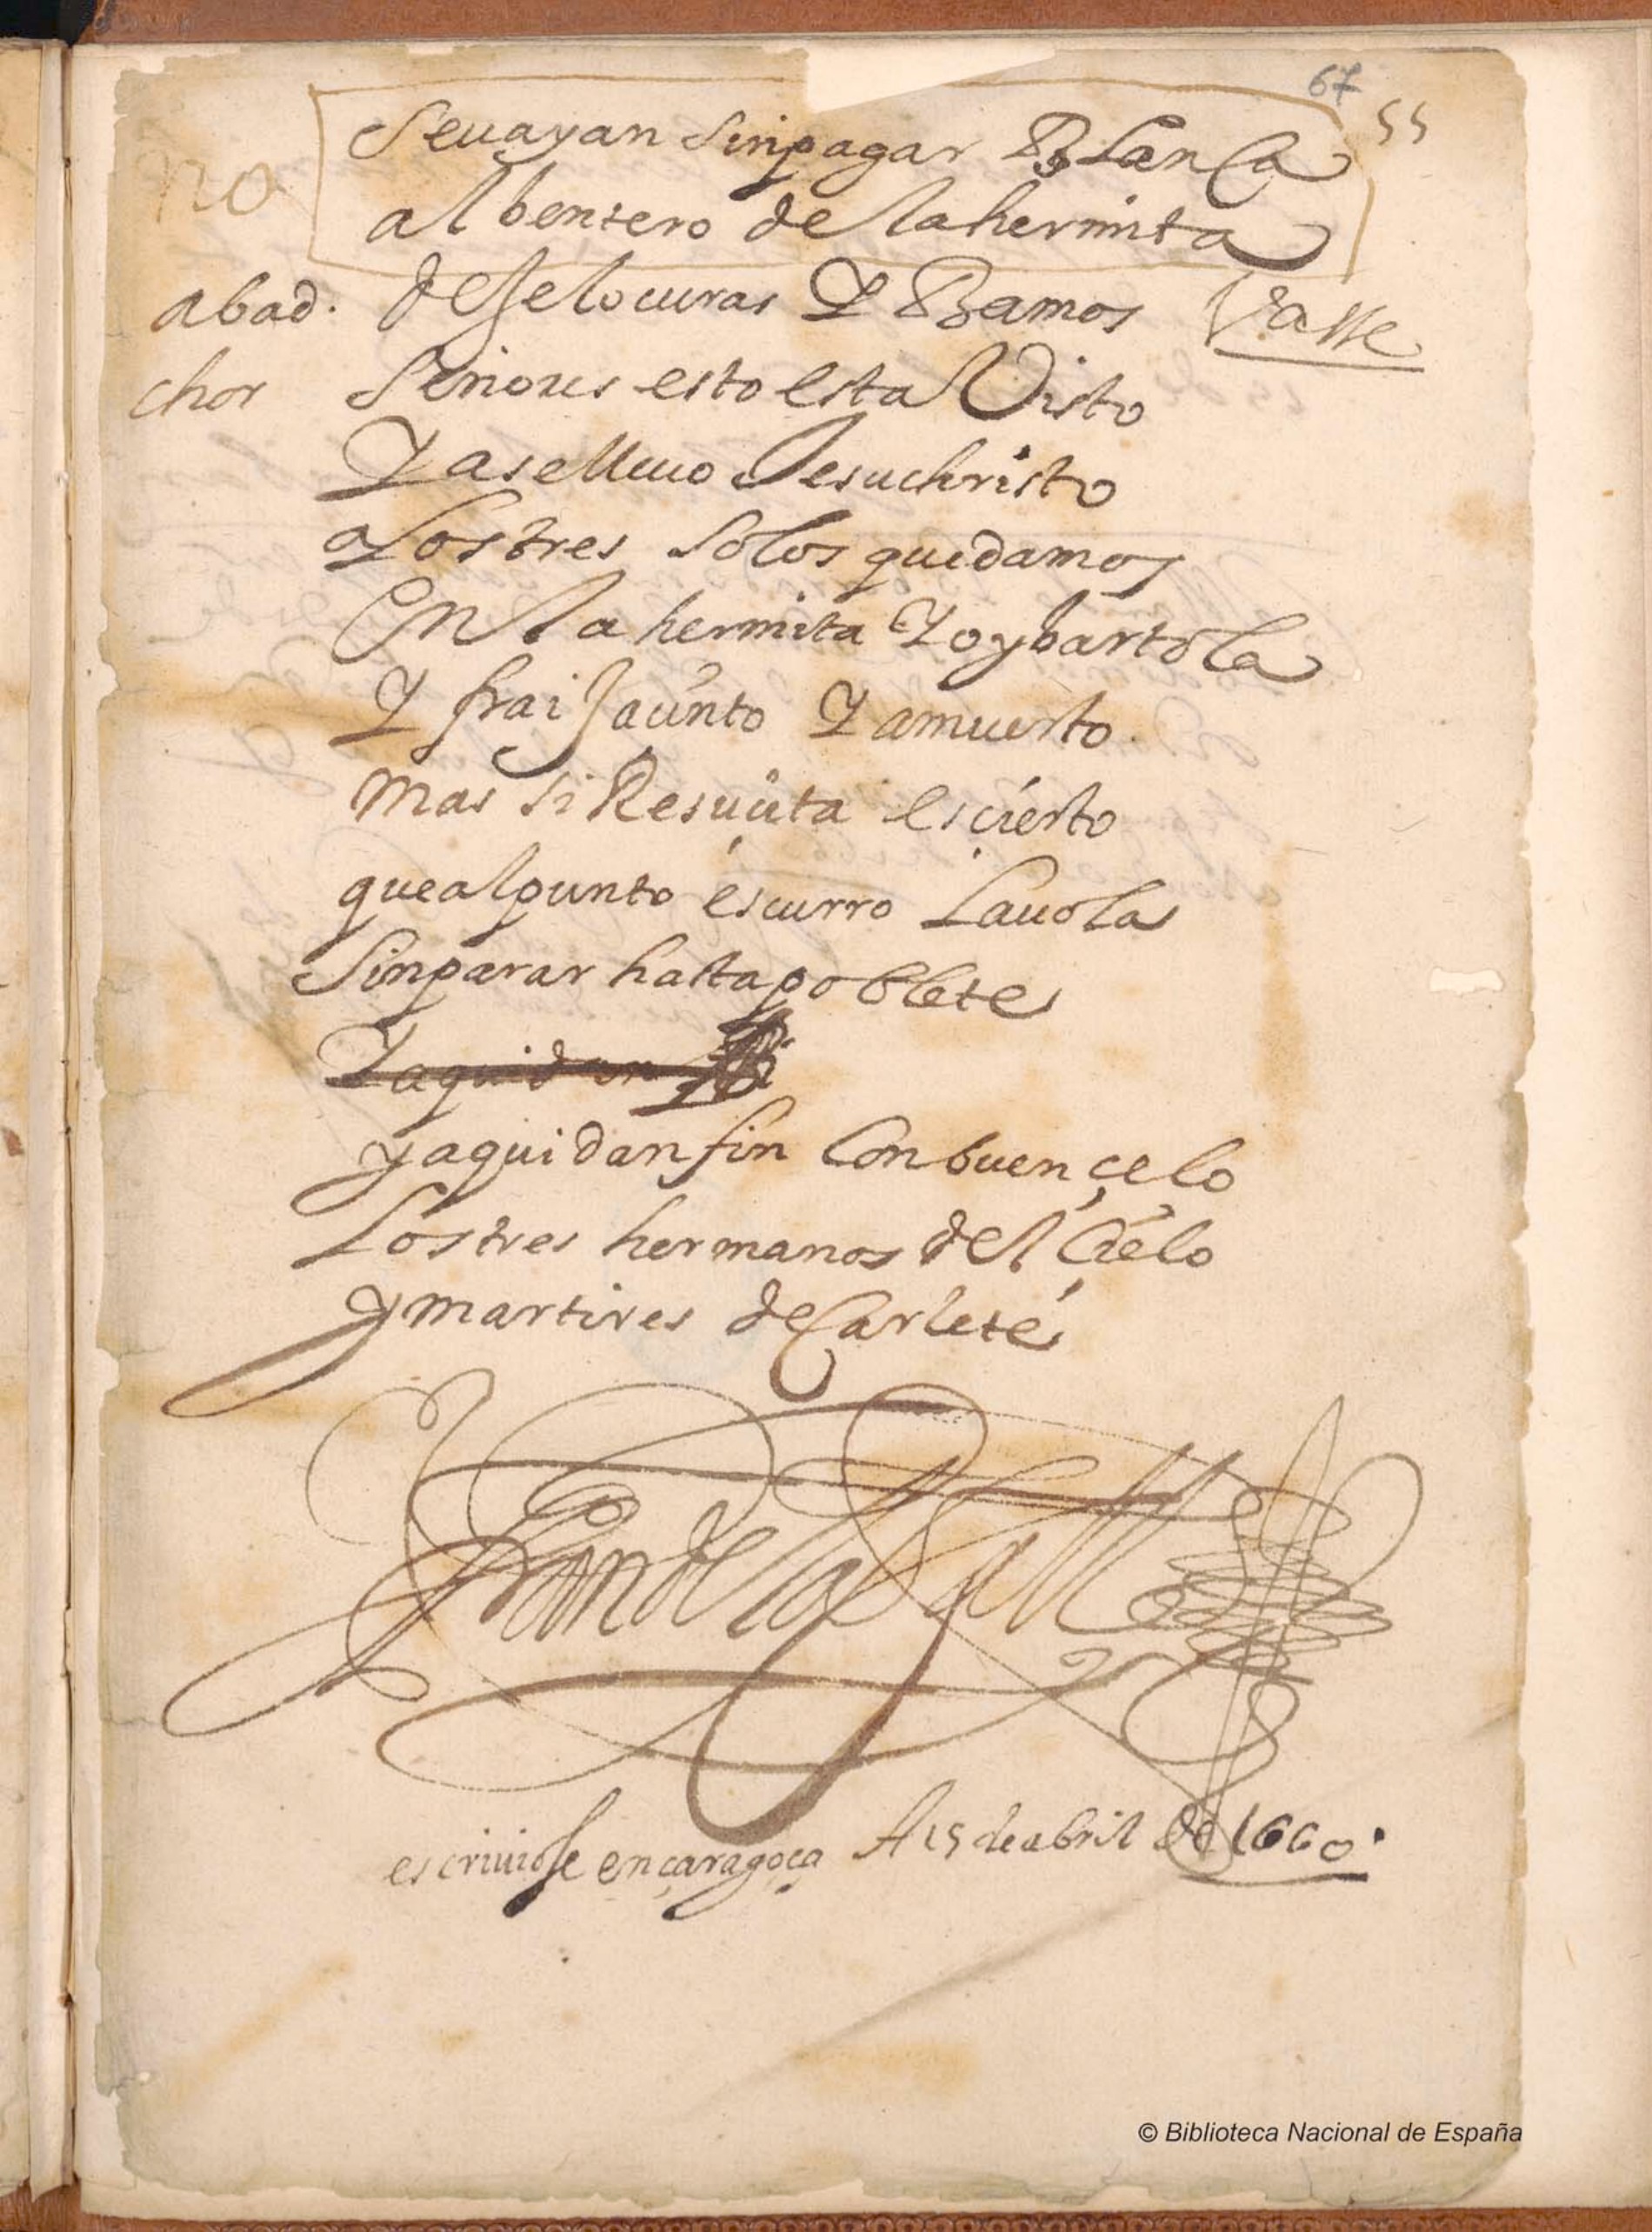 67
55
no
Seuayan sinpagar Blanca
al bentero de la hermita
abad. dejse locuras Y Bamos Vasse
chor Senores esto esta Visto
Y aselleuo Jesuchristo
Los tres solos quedamos
En la hermita Yo y bartola
Y frai Jacinto Y a muerto.
mas si Resucita es cierto
que al punto escurro La uola
Sin parar hasta poblete
Y aqui dan
y aqui dan fin Con buen çelo
Los tres hermanos del Cielo
y martires de Carlete
Fran de la Calle
escriuiose en çaragoça A 15 de abril de 1660.
© Biblioteca Nacional de España